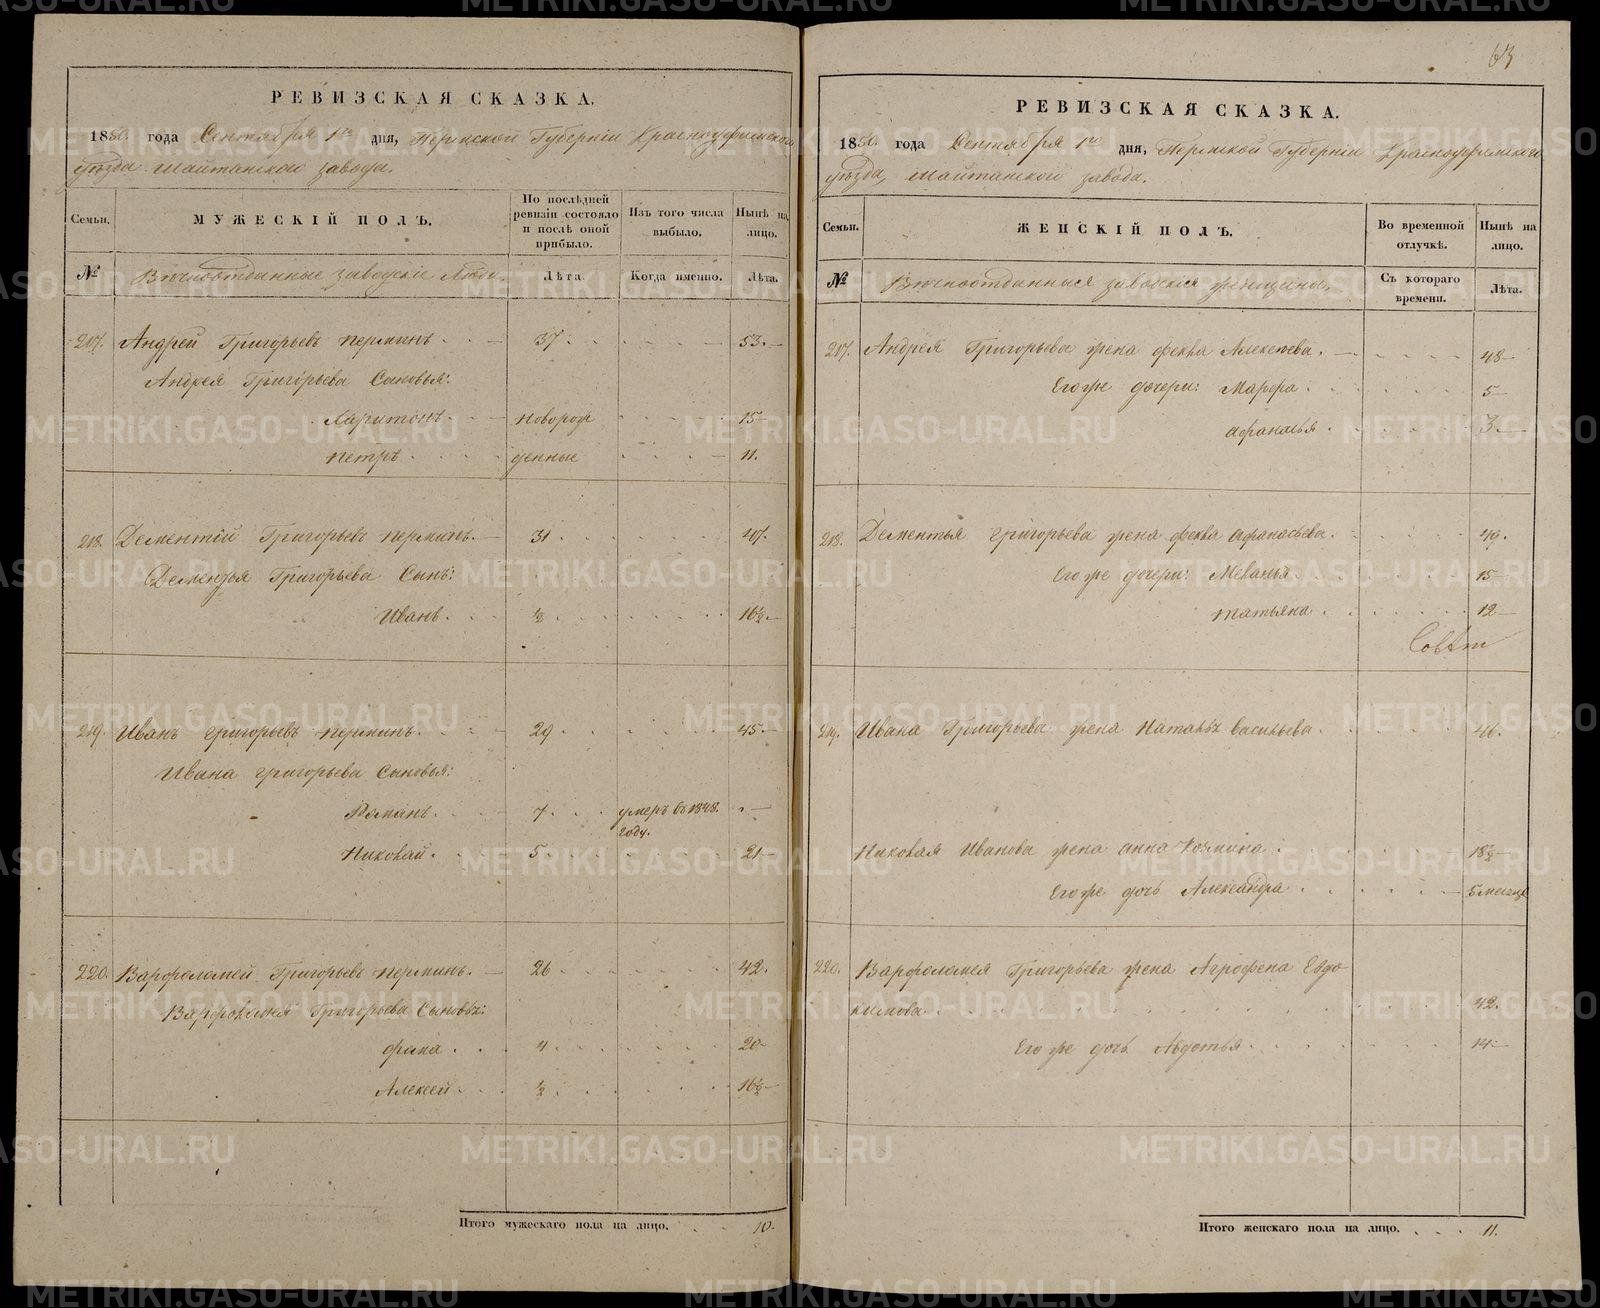 РЕВИЗСКАЯ СКАЗКА.
1850 года Сентября 1го дня, Пермской Губернiи Красноуфимскаго
уѣзда Шайтанскаго завода.
Семьи.
МУЖЕСКIЙ ПОЛЪ.
По послѣдней
ревизiи состояло
и послѣ оной
прибыло.
Изъ того числа
выбыло.
Нынѣ на
лицо.
№
Вѣчноотданные заводскiе Люди.
Лѣта.
Когда именно.
Лѣта.
217. Андрей Григорьевъ Перминъ. 37. 53.
Андрея Григорьева Сыновья:
Харитонъ. новорож 15
Петръ. денные 11.
218. Дементiй Григорьевъ Перминъ. 31. 47.
Дементья Григорьева Сынъ:
Иванъ. ½. 16½.
219. Иванъ Григорьевъ Перминъ. 29. 45.
Ивана Григорьева Сыновья:
Романъ. 7. умеръ въ 1848.
году.
Николай. 5. 21
220. Варфоломей Григорьевъ Перминъ. 26. 42.
Варфоломея Григорьева Сыновья:
фока. 4. 20
Алексей. ½. 16½
Итого мужескаго пола на лицо. 10.
63
РЕВИЗСКАЯ СКАЗКА.
1850 года Сентября 1го дня, Пермской Губернiи Красноуфимскаго
уѣзда, Шайтанскаго завода.
Семьи.
ЖЕНСКIЙ ПОЛЪ.
Во временной
отлучкѣ.
Нынѣ на
лицо.
№
Вѣчноотданныя заводскiя женщины.
Съ котораго
времени.
Лѣта.
217. Андрея Григорьева жена фекла Алексеева. 48
Его же дочери: Марфа. 5
Афанасья. 3.
218. Дементья Григорьева жена фекла Афанасьева. 49.
Его же дочери: Меланья. 15
Татьяна. 12
219. Ивана Григорьева жена Наталья Васильева. 46.
Николая Иванова жена Анна Козмина. 18½
Его же дочь Александра. 5 месяцъ
220. Варфоломея Григорьева жена Агрофена Евдо
кимова. 42.
Его же дочь Авдотья. 14
Итого женскаго пола на лицо. 11.
METRIKI.GASO-URAL.RU